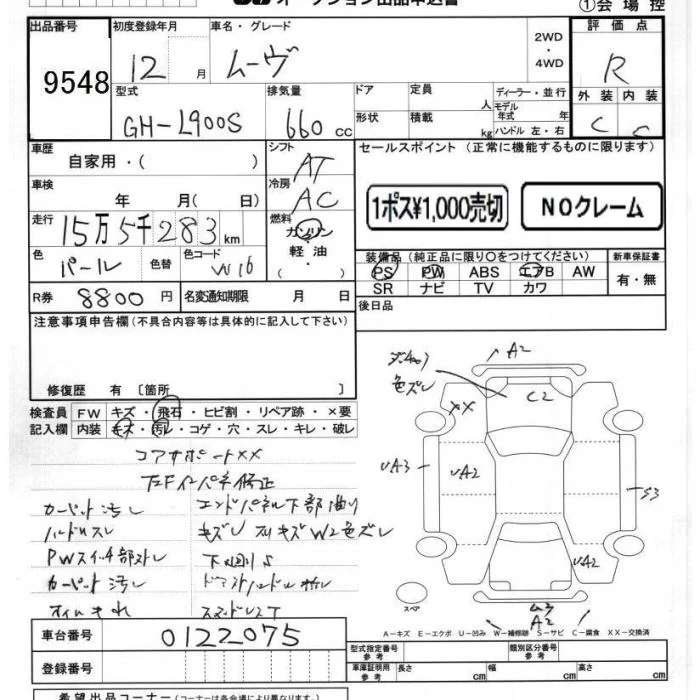 オークション出品申込書
①会場控
出品番号 9548
初度登録年月 12 月
車名・グレード ムーヴ
2WD・4WD
評価点 R
外装 C 内装 C
型式 GH-L900S
排気量 660 cc
ドア 形状
定員 人 積載 kg
ディーラー・並行
モデル年式 年
ハンドル 左・右
車歴 自家用・( )
シフト AT
セールスポイント (正常に機能するものに限ります)
1ポス¥1,000売切 NOクレーム
車検 年 月( 日)
冷房 AC
走行 15万5千283km
燃料 ガソリン・軽油・
色 パール 色替 色コード W16
装備品 (純正品に限り○をつけてください)
PS PW ABS エアB AW
SR ナビ TV カワ
新車保証書 有・無
R券 8800 円 名変通知期限 月 日
後日品
注意事項申告欄 (不具合内容等は具体的に記入して下さい)
修復歴 有 [箇所 ]
検査員 FW キズ・飛石・ヒビ割・リペア跡・×要
記入欄 内装 キズ・汚れ・コゲ・穴・スレ・キレ・破レ
コアサポートXX
カーペット汚レ
エンドパネル下部曲り
ハンドルスレ
PWスイッチ部スレ
カーペット汚レ
A2
色ズレ
XX
C2
UA3
UA2
S3
UA2
A2
スペア
A-キズ E-エクボ U-凹み W-補修跡 S-サビ C-腐食 XX-交換済
車台番号 0122075
型式指定番号 参考 類別区分番号 参考
登録番号
車庫証明用 参考 長さ cm 幅 cm 高さ cm
希望出品コーナー (コーナーは各会場により異なります)